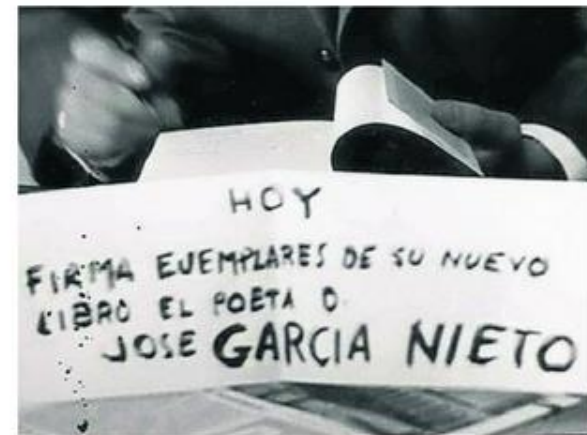 HOY
FIRMA EJEMPLARES DE SU NUEVO
LIBRO EL POETA D.
JOSE GARCIA NIETO